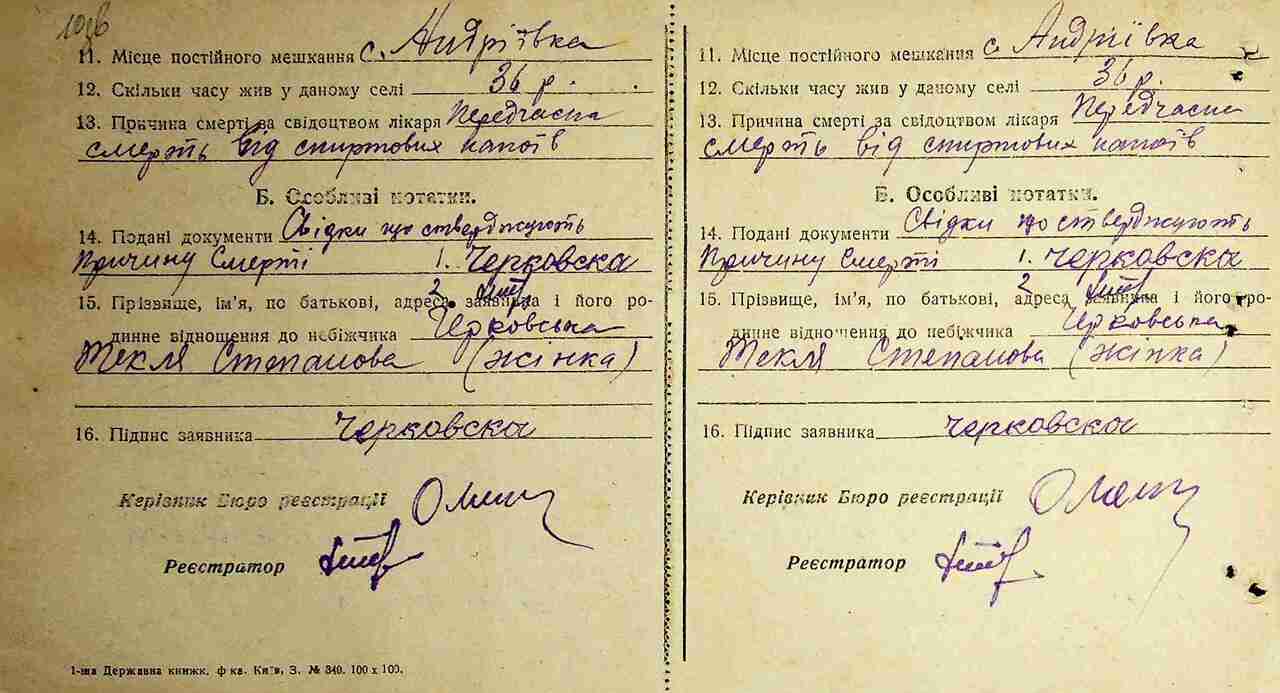 11. Місце постійного мешкання с. Андріївка
12. Скільки часу жив у даному селі 36 р.
13. Причина смерті за свідоцтвом лікаря Передчасна
смерть від спиртових напоїв
Б. Особливі нотатки.
14. Подані документи Свідки що стверджують
Причину Смерті 1. Черковска
2
15. Прізвище, ім'я, по батькові, адреса заявника і його ро-
динне відношення до небіжчика Черковська
Текля Степанова (жінка)
16. Підпис заявника Черковска
Керівник Бюро реєстрації
Реєстратор
1-ша Державна книжк. ф-ка. Київ, З. № 340. 100 х 100.
11. Місце постійного мешкання с. Андріївка
12. Скільки часу жив у даному селі 36 р.
13. Причина смерті за свідоцтвом лікаря Передчасна
смерть від спиртових напоїв
Б. Особливі нотатки.
14. Подані документи Свідки що стверджують
Причину Смерті 1. Черковска
2
15. Прізвище, ім'я, по батькові, адреса заявника і його ро-
динне відношення до небіжчика Черковська
Текля Степанова (жінка)
16. Підпис заявника Черковска
Керівник Бюро реєстрації
Реєстратор